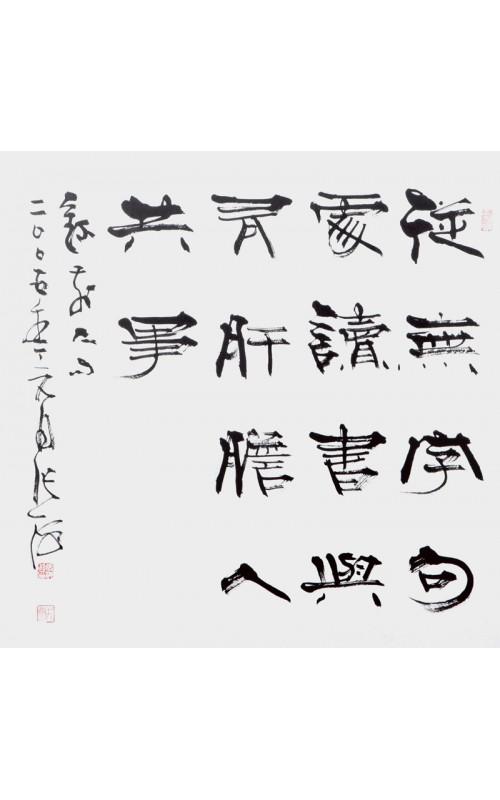 從無字句
處讀書與
有肝膽人
共事
二〇〇五年